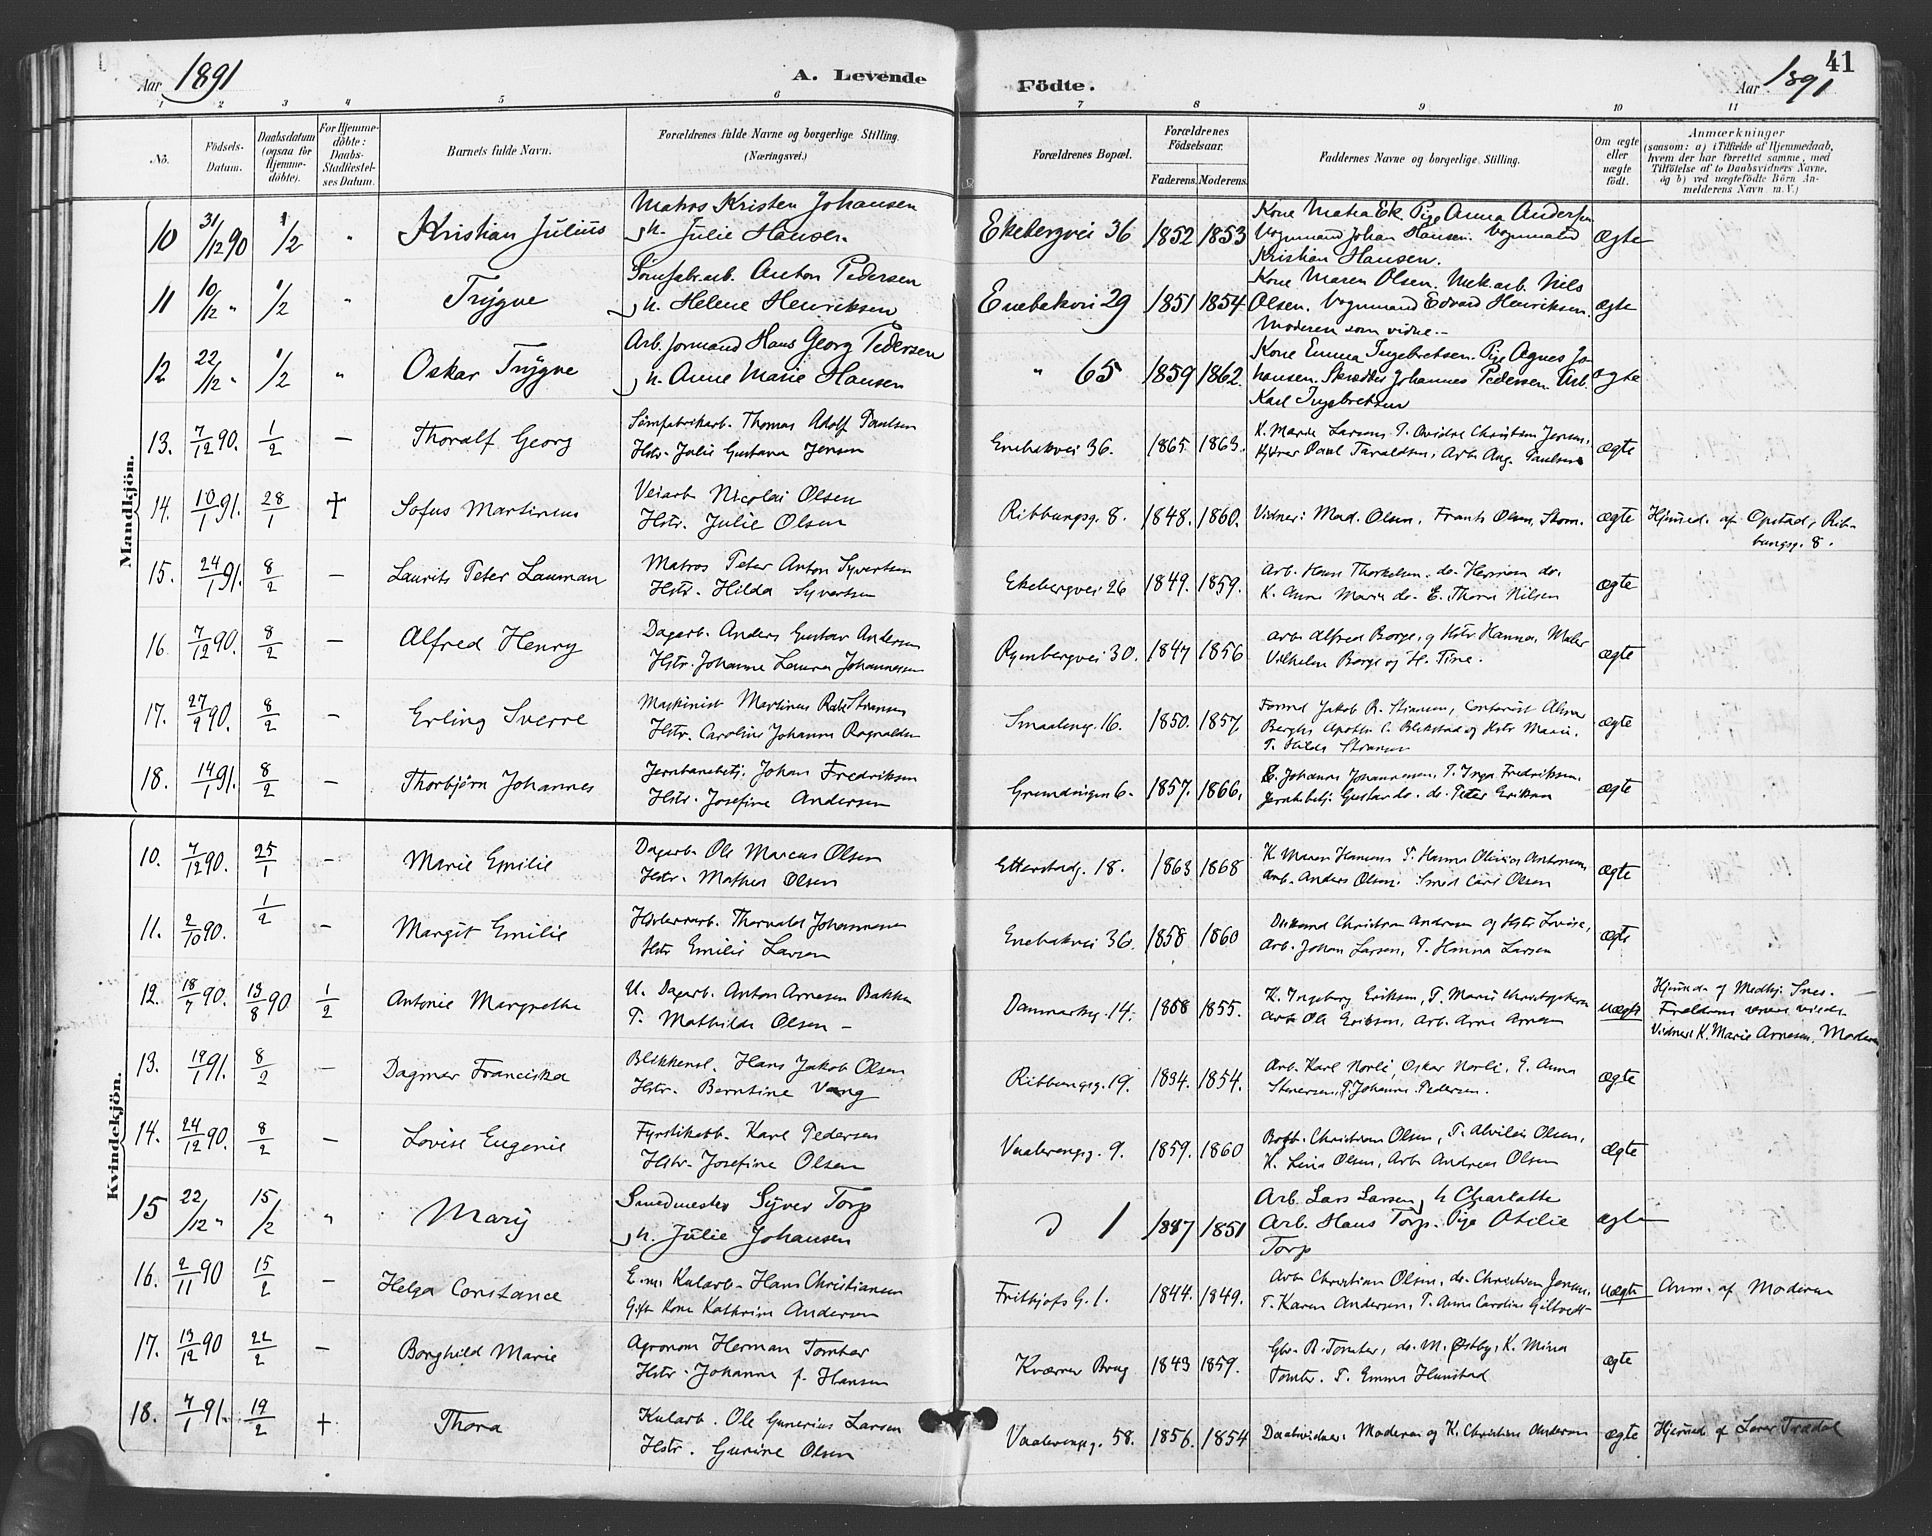 Aar 1891
A. Levende Fødte.
Aar 1891
41
1 2 3 4 5 6 7 8 9 10 11
No. Födsels-Datum. Daabsdatum (ogsaa for Hjemmedöbte). For Hjemmedöbte: Daabs-Stadfæstelses Datum. Barnets fulde Navn. Forældrenes fulde Navne og borgerlige Stilling. (Næringsvei.) Forældrenes Bopæl. Forældrenes Födselsaar. Faderens. Moderens. Faddernes Navne og borgerlige Stilling. Om ægte eller uægte födt. Anmærkninger (saasom: a) i Tilfælde af Hjemmedaab, hvem der har forrettet samme, med Tilföielse af to Daabsvidners Navne, og b) ved uægtefödte Börn Anmelderens Navn m. V.)
Mandkjön.
10 31/12 90 1/2 " Kristian Julius Matros Kristen Johansen h. Julie Hansen Ekebergvei 36 1852 1853 Kone Matea Ek. Pige Anna Andersen Vognmand Johan Hansen. Vognmand Kristian Hansen. ægte
11 10/12 " 1/2 " Trygve Sömfabr.arb. Anton Pedersen h. Helene Henriksen Enebakvei 29 1851 1854 Kone Maren Olsen. Mek.arb. Nils Olsen. Vognmand Edvard Henriksen. Moderen som vidne. ægte
12 22/12 " 1/2 " Oskar Trygve Arb.formand Hans Georg Pedersen h. Anne Marie Hansen " 65 1859 1862. Kone Emma Ingebretsen. Pige Agnes Johansen. Skrædder Johannes Pedersen. Arb. Karl Ingebretsen ægte
13. 7/12 90. 1/2 — Thoralf Georg Sömfabrikarb. Thomas Adolf Paulsen Hstr. Julie Gustava Jensen Enebakvei 36. 1865 1863. K. Marie Larsen, Christian Jensen, Paul Taraldsen, Arb. Aug. Paulsen ægte
14. 10/1 91. 28/1 † Sofus Martinius Veiarb. Nicolai Olsen Hstr. Julie Olsen Ribbungsg. 8. 1848. 1860. Vidner: Mad. Olsen, Frants Olsen, Skom. ægte Hjemmed. af Opstad, Ribbungsg. 8.
15. 24/1 91. 8/2 — Laurits Peter Lauman Matros Peter Anton Syvertsen Hstr. Hilda Syvertsen Ekebergvei 26 1849. 1859. Arb. Hans Thorkelsen. do. Herman do. K. Anne Marie do. E. Thora Nilsen ægte
16. 7/12 90. 8/2 — Alfred Henry Dagarb. Anders Gustav Andersen Hstr. Johanne Laura Johannessen Rymbergvei 30. 1847 1856 Arb. Alfred Borge, og Hstr Hanna, Maler Vilhelm Borge og H. Tine. ægte
17. 27/9 90. 8/2 — Erling Sverre Maskinist Martinus Stramsen Hstr. Caroline Johanne Ragnalden Smaaleng. 16. 1850. 1857 Jakob R. ægte
18. 14/1 91. 8/2 — Thorbjörn Johannes Jernbanebetj. Johan Fredriksen Hstr. Josefine Andersen Grundingen 6. 1857. 1866. E. Johanne Johannessen, P. Inga Fredriksen, Jernbbetj. Gustav do. do. Peter Eriksen ægte
Kvindekjön.
10. 7/12 90. 25/1 — Marie Emilie Dagarb. Ole Marcus Olsen Hstr. Mathea Olsen Etterstadg. 18. 1863 1868 K. Maren Hansens P. Hanna Olivia Antonsen Arb. Anders Olsen. Smed Carl Olsen ægte
11. 2/10 90. 1/2 — Margit Emilie Thorvald Johannesen Hstr Emilie Larsen Enebakvei 36. 1858 1860 Christian Andersen og Hstr Lovise, Arb. Johan Larsen, P. Hanna Larsen ægte
12. 18/7 90. 13/8 90 1/2 Antonie Margrethe U. Dagarb. Anton Arnesen Bakken P. Mathilde Olsen — Danmarksg. 14. 1858 1855. K. Ingeborg Eriksen, P. Marie Arb Ole Eriksen, Arb. Arne Arnesen uægte Hjemmed. af Medhj. Vidner: K. Marie Arnesen, Moderen
13. 19/1 91. 8/2 — Dagmar Franciska Blikkensl. Hans Jakob Olsen Hstr. Berntine Vang Ribbungsg. 19. 1834. 1854. Arb. Karl Norli, Oskar Norli, E. Anna Stenersen, P. Johanne Pedersen. ægte
14. 24/12 90. 8/2 — Lovise Eugenie Fyrstikarb. Karl Pedersen Hstr. Josefine Olsen Vaalerengsg. 9. 1859. 1860 Christian Olsen, P. Alvilde Olsen, K. Lina Olsen, Arb. Andreas Olsen ægte
15 22/12 " 15/2 " Mary Smedmester Syver Torp h. Julie Johansen do 1 1847 1851 Arb. Lars Larsen, h Charlotte Arb. Hans Torp. Pige Otilie Torp ægte
16. 2/11 90 15/2 — Helga Constance E.m. Kularb. Hans Christiansen Gift Kone Kathrine Andersen Frithjofs G. 1. 1844. 1849. Arb Christian Olsen, do. Christian Jensen, P. Karen Andersen, P. Anne Caroline Giltvedt uægte Anm. af Moderen
17. 13/12 90 22/2 — Borghild Marie Agronom Herman Tomter Hstr. Johanne f. Hansen Kværner Brug 1843 1859. Gbr. R. Tomter, do. M. Østby, K. Mina Tomter. P. Emma Hunstad ægte
18. 7/1 91. 19/2 † Thora Kularb. Ole Gunerius Larsen Hstr. Gurine Olsen Vaalerengsg. 58. 1856. 1854 Daabsvidner: Moderen og K. Christine Andersen ægte Hjemmed. af Lærer Trædal